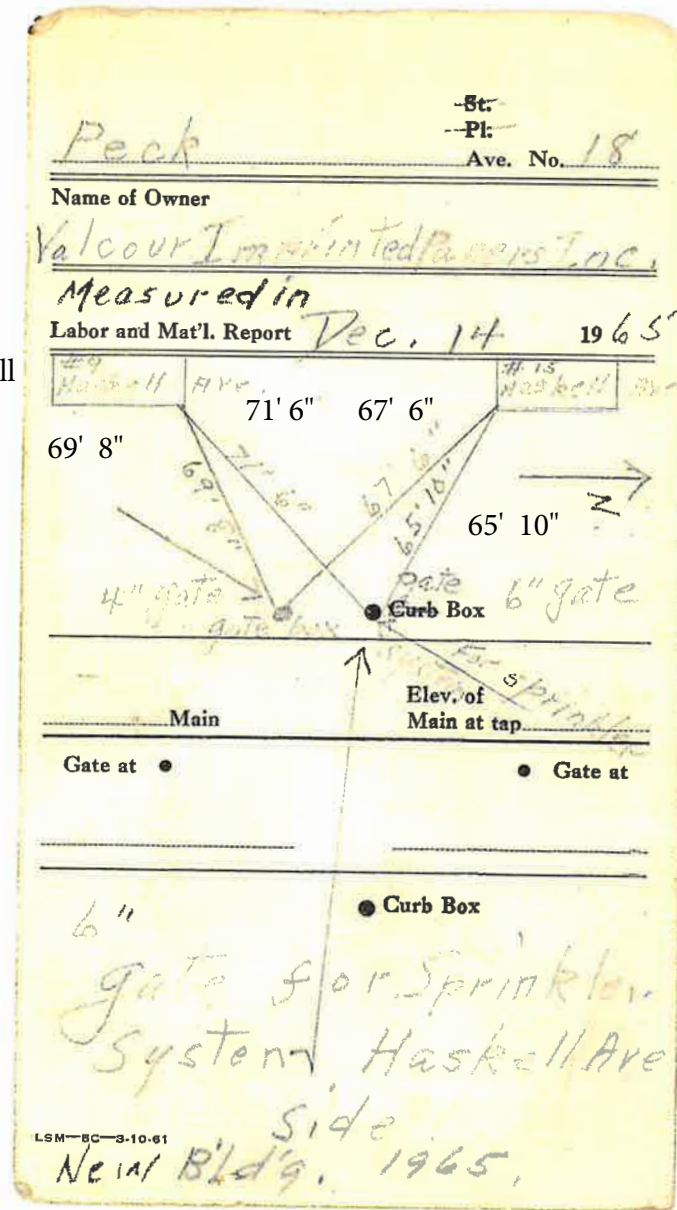 St.
Pl.
Peck Ave. No. 18
Name of Owner
Valcour Imprinted Papers Inc.
Measured in
Labor and Mat'l. Report Dec. 14 1965
ll
#9 Haskell Ave.
#15 Haskell Av-
71' 6" 67' 6"
69' 8"
69' 8" 71' 6" 67' 6" 65' 10"
65' 10"
N
4" gate
gate box
gate
Curb Box
6" gate
For Sprinkler
S
Main
Elev. of
Main at tap
Gate at
Gate at
Curb Box
6"
gate for Sprinkler
System Haskell Ave
Side
LSM—BC—3-10-61
New B'ld'g. 1965.